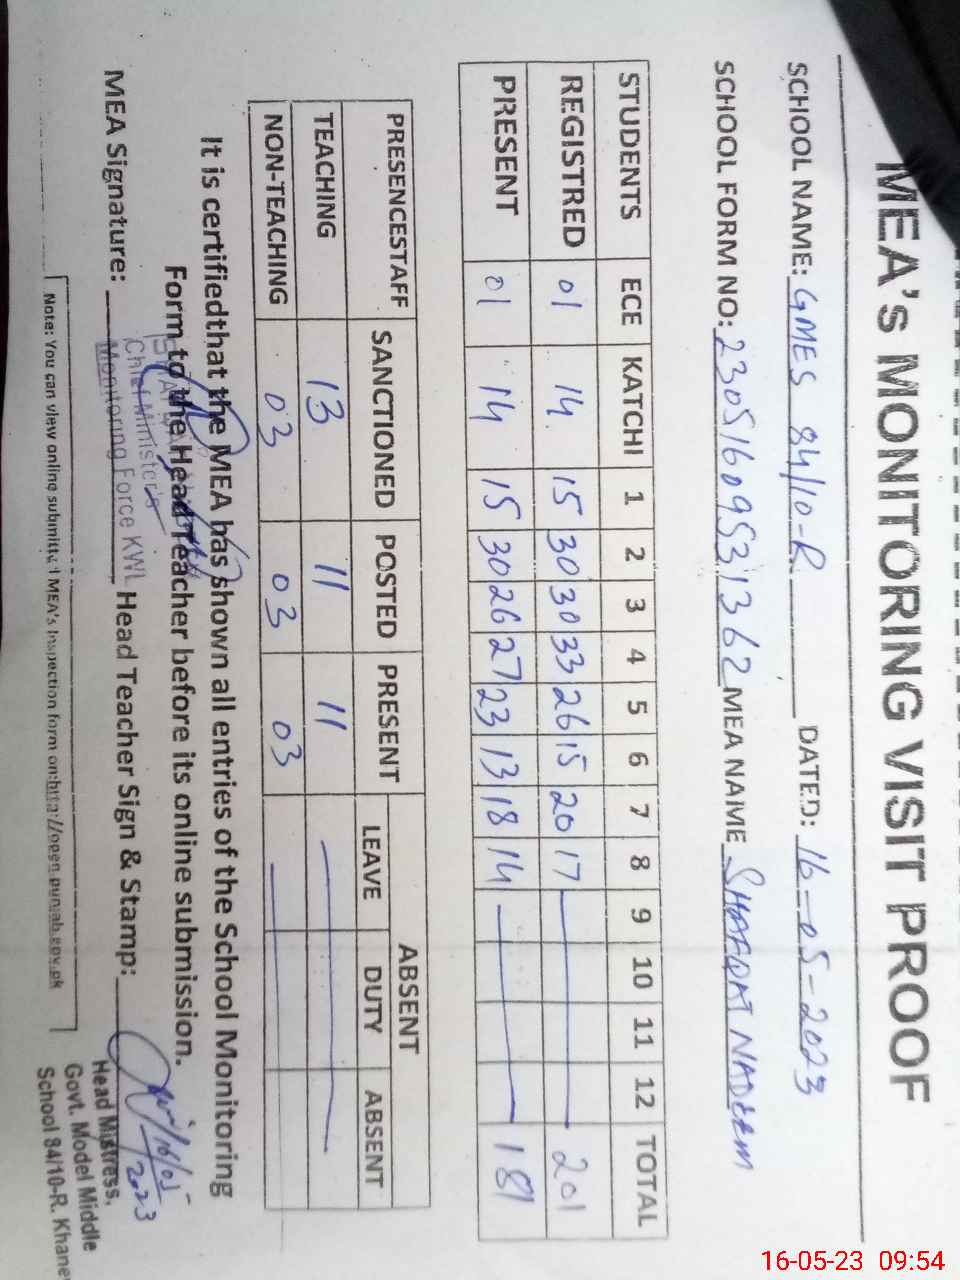 MEA's MONITORING VISIT PROOF
SCHOOL NAME: GMES 84/10-R DATED: 16-05-2023
SCHOOL FORM NO: 23051609531362 MEA NAME SHAFQAT NADEEM
STUDENTS ECE KATCHI 1 2 3 4 5 6 7 8 9 10 11 12 TOTAL
REGISTRED 01 14 15 30 30 33 26 15 20 17 201
PRESENT 01 14 15 30 26 27 23 13 18 14 181
PRESENCESTAFF SANCTIONED POSTED PRESENT ABSENT
LEAVE DUTY ABSENT
TEACHING 13 11 11
NON-TEACHING 03 03 03
It is certifiedthat the MEA has shown all entries of the School Monitoring
Form to the Head Teacher before its online submission.
Chief Minister's
Monitoring Force KWL
MEA Signature: Head Teacher Sign & Stamp:
16/05
2023
Head Mistress,
Govt. Model Middle
School 84/10-R. Khane
Note: You can view online submitted MEA's Inspection form on:http://open.punjab.gov.pk
16-05-23 09:54